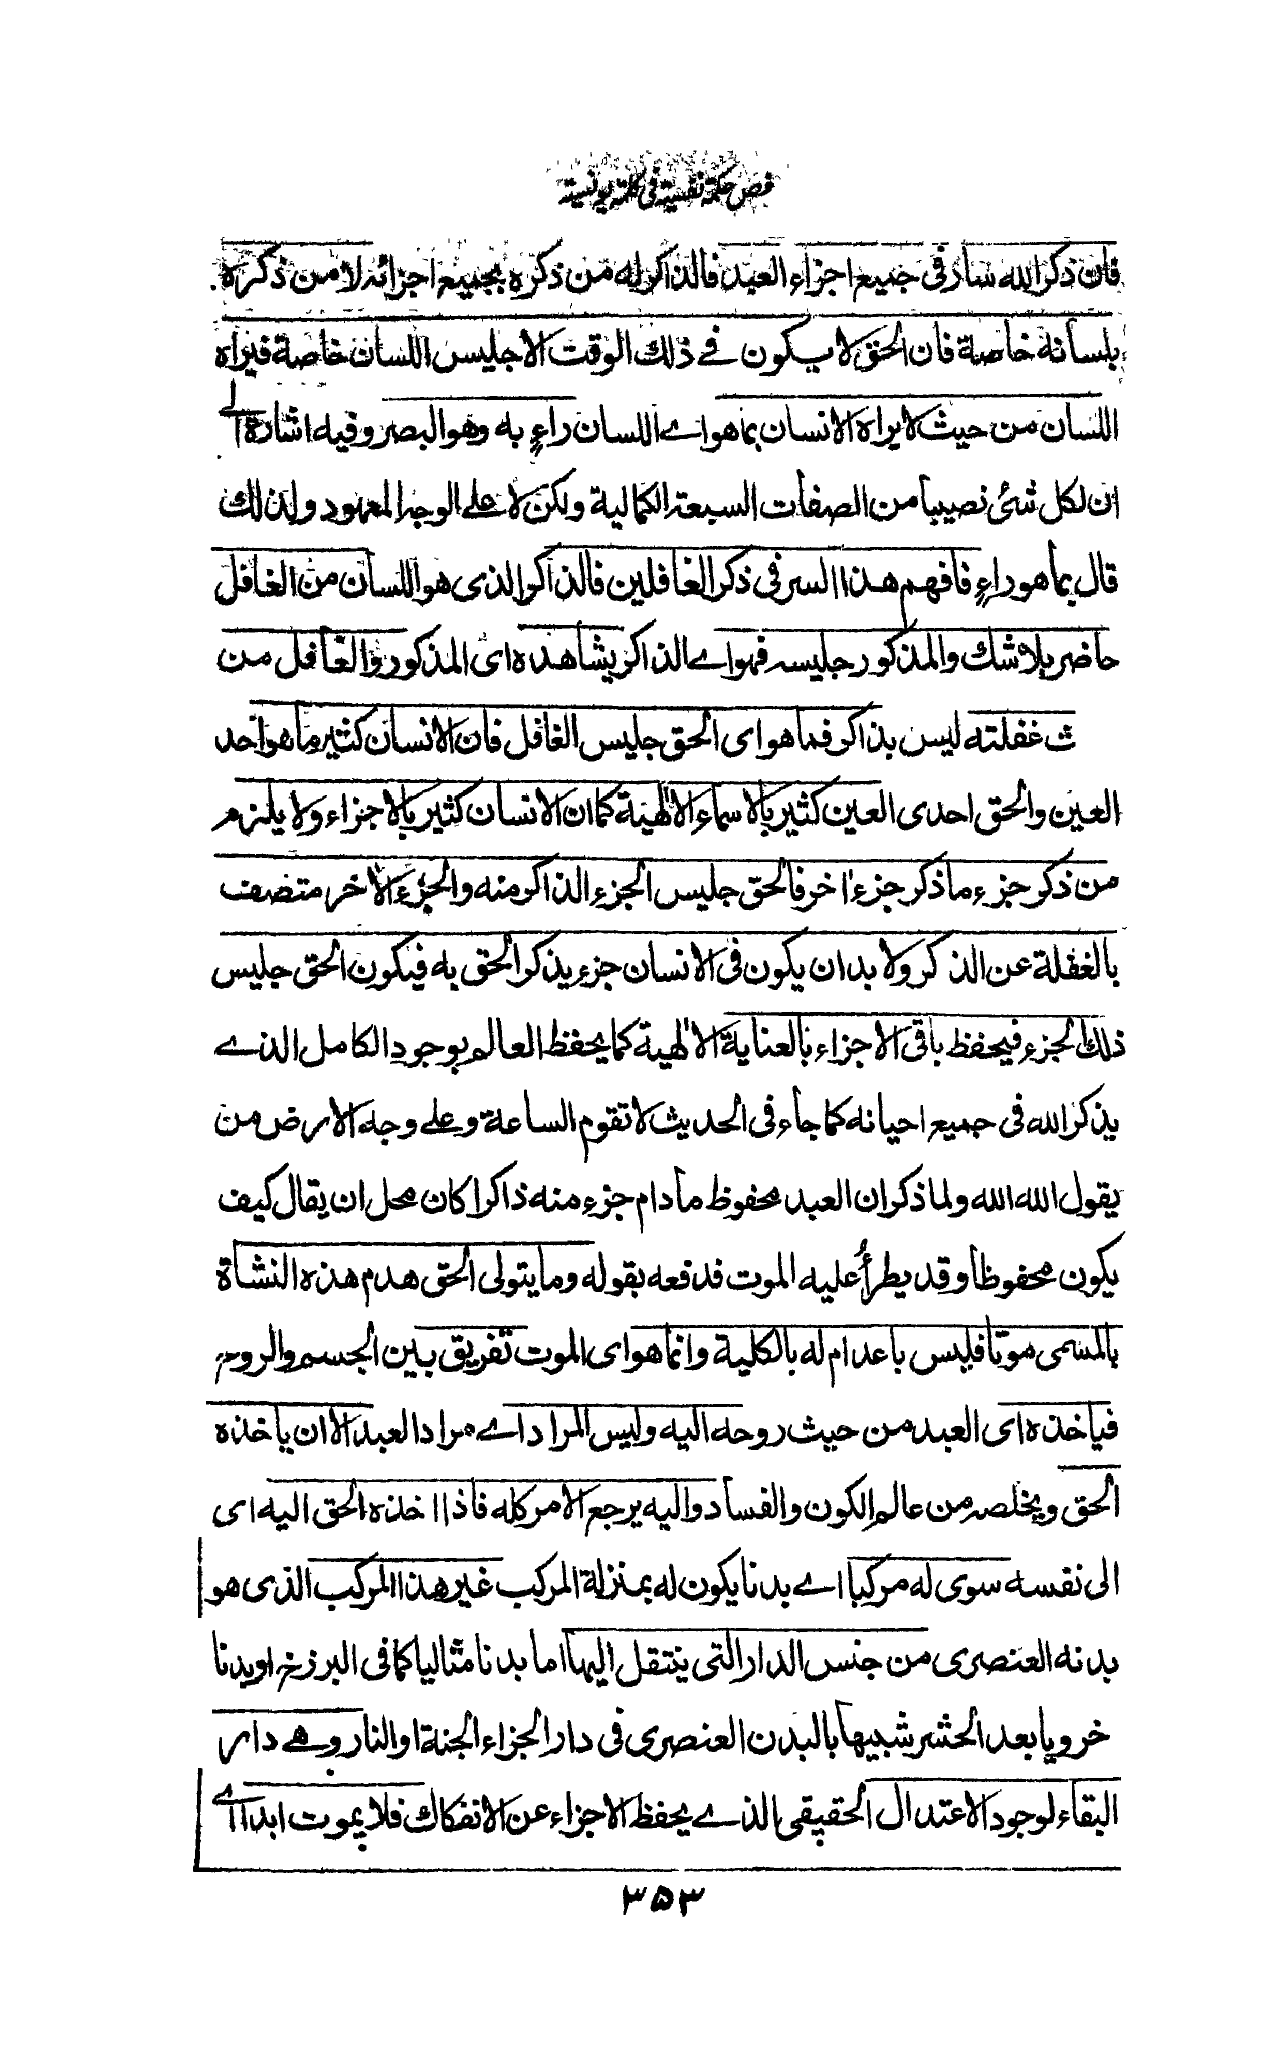 فص حكمة نفسية فى كلمة يونسية
فان ذكر الله سار فى جميع اجزاء العبد فالذاكر له من ذكره بجميع اجزائه لا من ذكره
بلسانه خاصة فان الحق لا يكون فے ذلك الوقت الا جليس اللسان خاصة فيراه
اللسان من حيث لا يراه الانسان بما هو اے اللسان راءٍ به وهو البصر وفيه اشارة الے
ان لكل شئ نصيبا من الصفات السبعة الكمالية ولكن لا علے الوجه المعهود ولذلك
قال بما هو راءٍ فافهم هذا السر فى ذكر الغافلين فالذاكر الذى هو اللسان من الغافل
حاضر بلا شك والمذكور جليسه فهو اے الذاكر يشاهده اى المذكور والغافل من
ث غفلته ليس بذاكر فما هو اى الحق جليس الغافل فان الانسان كثير ما هو احد
العين والحق احدى العين كثير بالاسماء الالٰهية كما ان الانسان كثير بالاجزاء ولا يلزم
من ذكر جزء ما ذكر جزء اخر فالحق جليس الجزء الذاكر منه والجزء الاخر متصف
بالغفلة عن الذكر ولا بد ان يكون فى الانسان جزء يذكر الحق به فيكون الحق جليس
ذلك الجزء فيحفظ باقى الاجزاء بالعناية الالٰهية كما يحفظ العالم بوجود الكامل الذے
يذكر الله فى جميع احيانه كما جاء فى الحديث لا تقوم الساعة وعلے وجه الارض من
يقول الله الله ولما ذكر ان العبد محفوظ ما دام جزء منه ذاكرا كان محل ان يقال كيف
يكون محفوظا وقد يطرأُ عليه الموت فدفعه بقوله وما يتولى الحق هدم هذه النشاة
بالمسمى موتا فليس باعدام له بالكلية وانما هو اى الموت تفريق بين الجسم والروح
فياخذه اى العبد من حيث روحه اليه وليس المراد اے مراد العبد الا ان ياخذه
الحق ويخلصه من عالم الكون والفساد واليه يرجع الامر كله فاذا اخذه الحق اليه اى
الى نفسه سوى له مركبا اے بدنا يكون له بمنزلة المركب غير هذا المركب الذى هو
بدنه العنصرى من جنس الدار التى ينتقل اليها اما بدنا مثاليا كما فى البرزخ او بدنا
خرويا بعد الحشر شبيها بالبدن العنصرى فى دار الجزاء الجنة او النار وهے دار
البقاء لوجود الاعتدال الحقيقى الذے يحفظ الاجزاء عن الانفكاك فلا يموت ابدا اے
٣٥٣